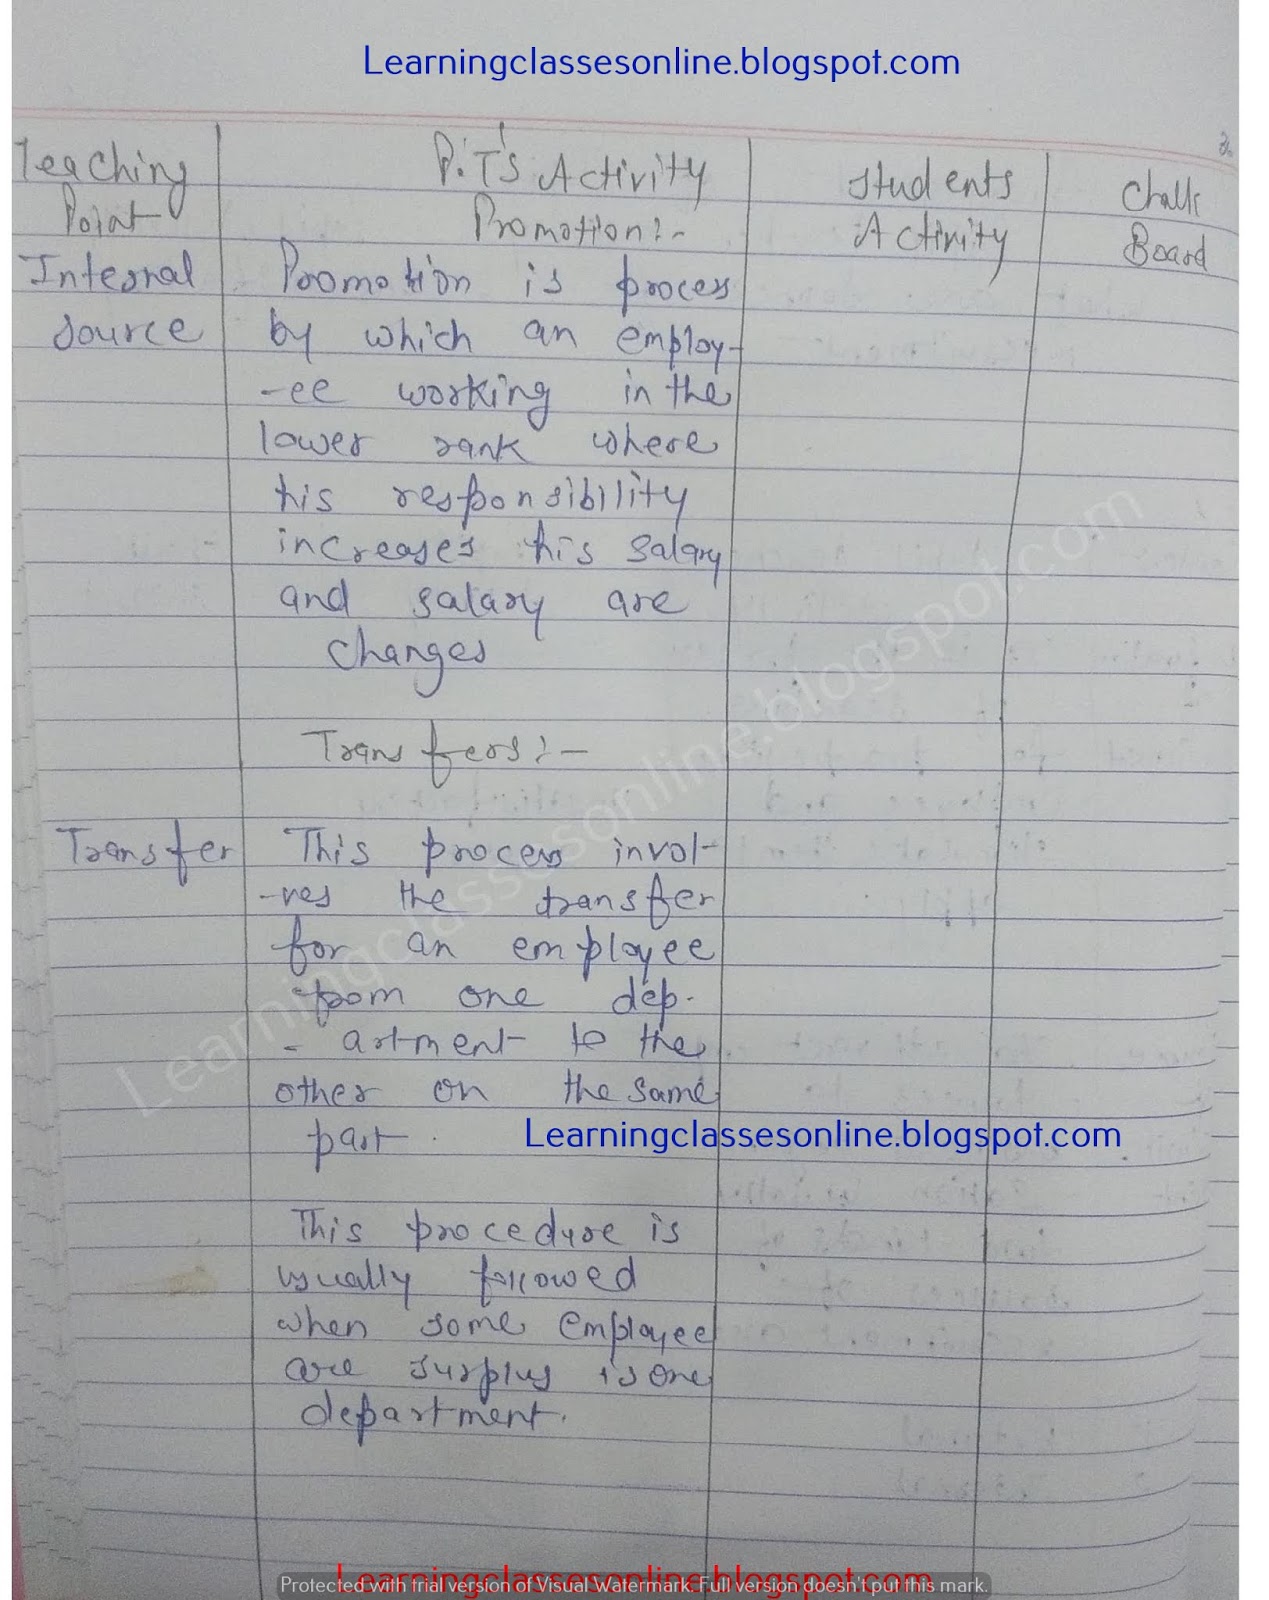 Learningclassesonline.blogspot.com
Teaching Point
P.T's Activity
Students Activity
Chalk Board
Promotion:-
Internal source
Promotion is process
by which an employ-
-ee working in the
lower rank where
his responsibility
increases his salary
and salary are
changes
Transfers:-
Transfer
This process invol-
-ves the transfer
for an employee
from one dep-
- artment to the
other on the same
part.
Learningclassesonline.blogspot.com
This procedure is
usually followed
when some employee
are surplus is one
department.
Learningclassesonline.blogspot.com
Learningclassesonline.blogspot.com
Protected with trial version of Visual Watermark. Full version doesn't put this mark.